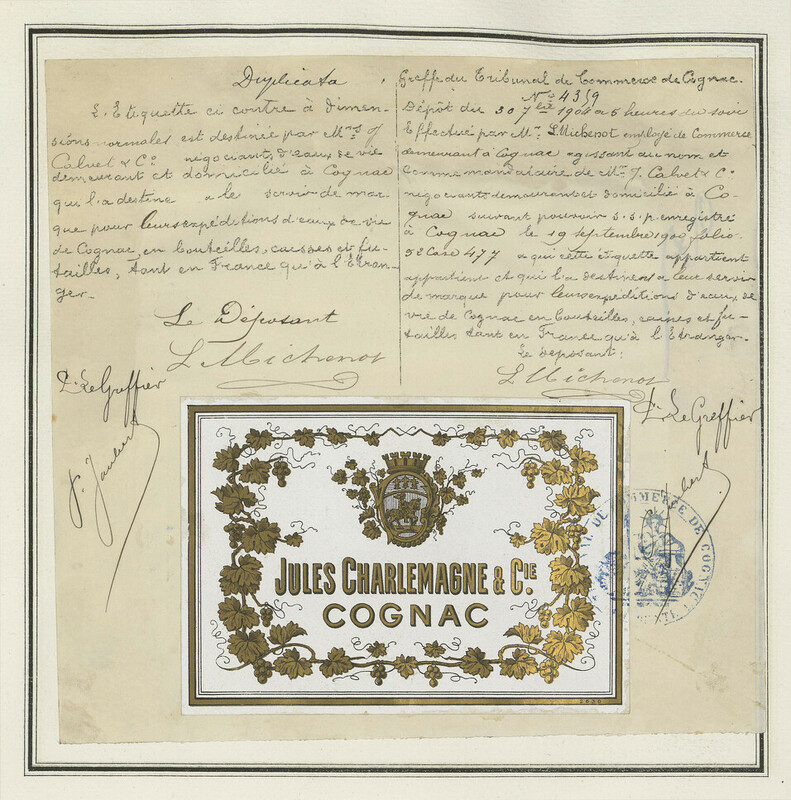 Duplicata
L'Etiquette ci contre à dimen-
sions normales est destinée par Mrs J
Calvet & Co négociants d'eaux de vie
demeurant et domicilié à Cognac
qui l'a destine a le servir de mar
que pour leurs expéditions d'eaux de vie
de Cognac, en bouteilles, caisses et fu-
tailles, tant en France qu'à l'Etran-
ger.
Le Déposant
L Michenot
Pr Le Greffier
J. Jaubert
Greffe du Tribunal de Commerce de Cognac.
No 4359
Dépôt du 30 7bre 1904 a 5 heures du soir
Effectué par Mr. L Michenot employé de Commerce
demeurant à Cognac agissant au nom et
comme mandataire de Mrs J. Calvet & Co
négociants demeurant et domicilié à Co-
gnac suivant pouvoir s.s.p. enregistré
à Cognac le 19 septembre 1900 folio
52 Case 477 a qui cette étiquette appartient
appartient et qui l'a destinent a leur servir
de marque pour leurs expéditions d'eaux de
vie de Cognac en bouteilles, caisses et fu-
tailles tant en France qu'à l'Etranger.
Le Deposant:
L Michenot
Pr Le Greffier
JULES CHARLEMAGNE & CIE.
COGNAC
DE COMMERCE DE COGNAC